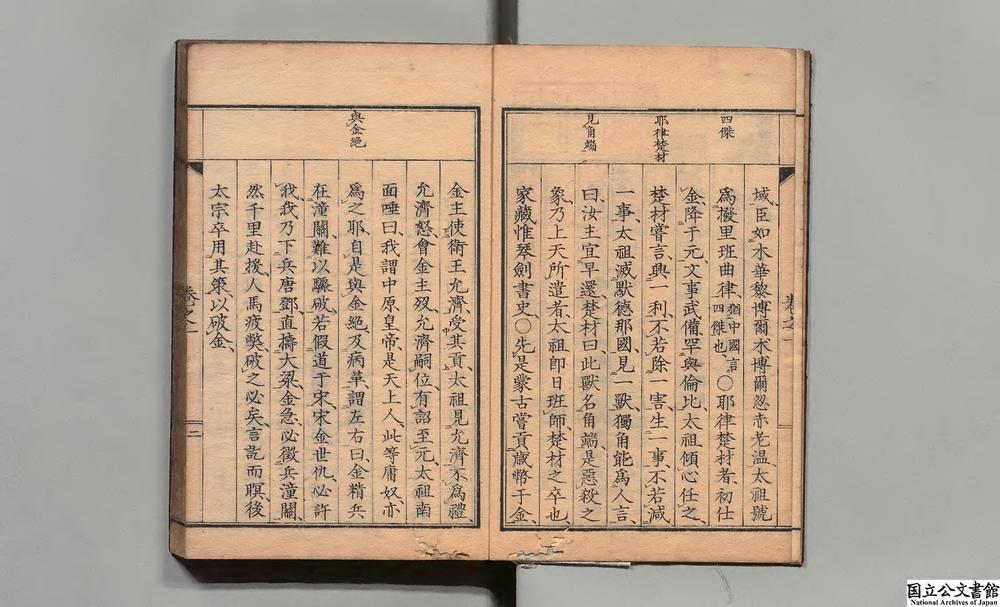 四傑
耶律楚材
見角端
域、臣如木華黎博爾木博爾忽赤老溫、太祖號
爲撥里班曲律、猶中國言四傑也、○耶律楚材者、初仕
金、降于元、文事武備、罕與倫比、太祖傾心任之、
楚材嘗言、興一利、不若除一害、生一事、不若減
一事、太祖滅默德那國、見一獸、獨角能爲人言、
曰、汝主宜早還、楚材曰、此獸名角端、是惡殺之
象、乃上天所遣者、太祖卽日班師、楚材之卒也、
家藏惟琴劍書史、○先是蒙古嘗貢歲幣于金、
卷之一
與金絕
金主使衛王允濟、受其貢、太祖見允濟、不爲禮、
允濟怒、會金主歿、允濟嗣位、有詔至元、太祖南
面唾曰、我謂中原皇帝、是天上人、此等庸奴、亦
爲之耶、自是與金絕、及病革、謂左右曰、金精兵
在潼關、難以驟破、若假道于宋、宋金世仇、必許
我、我乃下兵唐鄧、直擣大梁、金急、必徵兵潼關、
然千里赴援、人馬疲獘、破之必矣、言訖而暝、後
太宗卒用其策、以破金、
卷之一
二
国立公文書館
National Archives of Japan